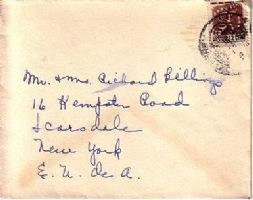 Mr. & Mrs. Richard Billings
16 Kempster Road
Scarsdale
New York
E. U. de A.